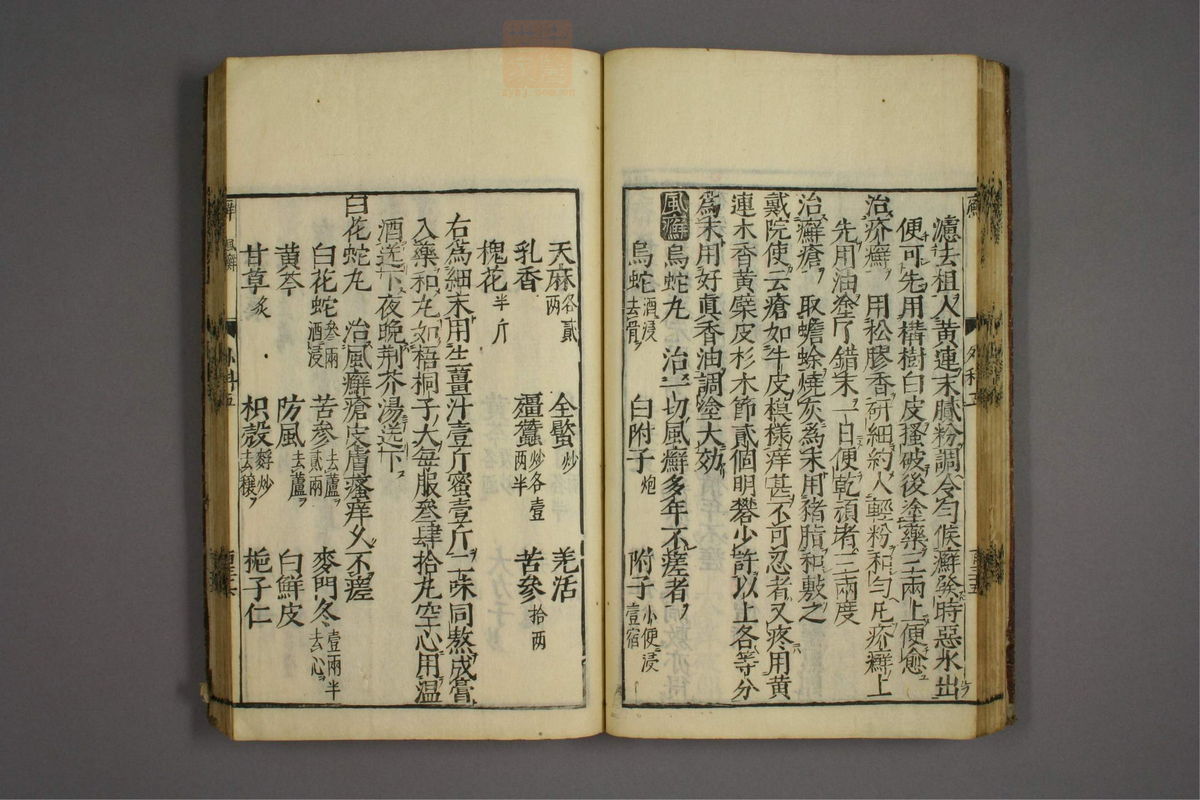 濾去柤入黃連末膩粉調令勻候癬發時惡水出
便可先用構樹白皮搔破後塗藥三兩上便愈
治疥癬 用松膠香研細約入輕粉和勻凡疥癬上
先用油塗了錯末一日便乾頑者三兩度
治癬瘡 取蟾蜍燒灰為末用猪脂和敷之
戴院使云瘡如牛皮模樣痒甚不可忍者又疼用黃
連木香黃蘗皮杉木節貳個明礬少許以上各等分
為末用好真香油調塗大効
風癬 烏蛇丸 治一切風癬多年不瘥者
烏蛇酒浸去骨 白附子炮 附子小便浸壹宿
天麻各貳两 全蝎炒 羌活
乳香 殭蠶炒各壹两半 苦參拾两
槐花半斤
右為細末用生薑汁壹斤蜜壹斤二味同熬成膏
入藥和丸如梧桐子大每服叄肆拾丸空心用溫
酒送下夜晚荆芥湯送下
白花蛇丸 治風癬瘡皮膚瘙痒久不瘥
白花蛇叄兩酒浸 苦參去蘆貳兩 麥門冬壹兩半去心
黃芩 防風去蘆 白鮮皮
甘草炙 枳殼去穰麸炒 梔子仁